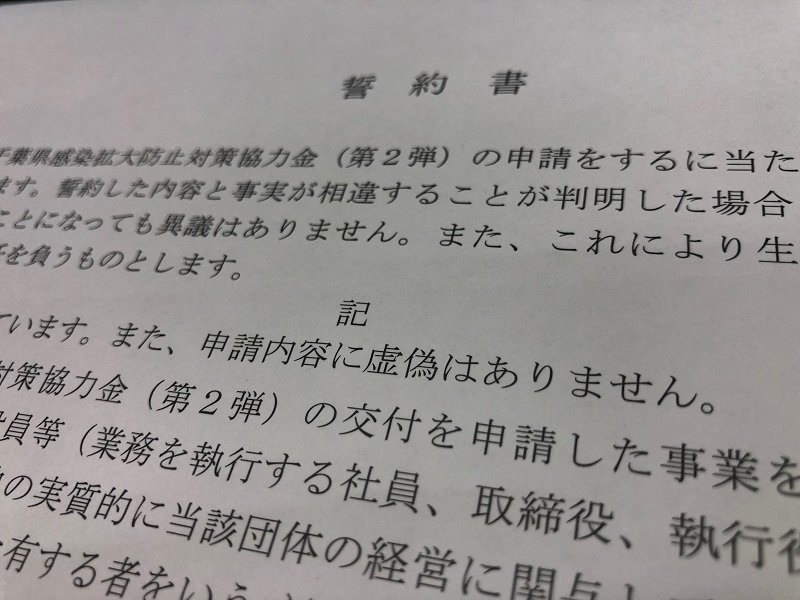 誓約書
千葉県感染拡大防止対策協力金（第２弾）の申請をするに当た
ます。誓約した内容と事実が相違することが判明した場合
ことになっても異議はありません。また、これにより生
任を負うものとします。
記
ています。また、申請内容に虚偽はありません。
対策協力金（第２弾）の交付を申請した事業を
員等（業務を執行する社員、取締役、執行役
の実質的に当該団体の経営に関与し
有する者をいう